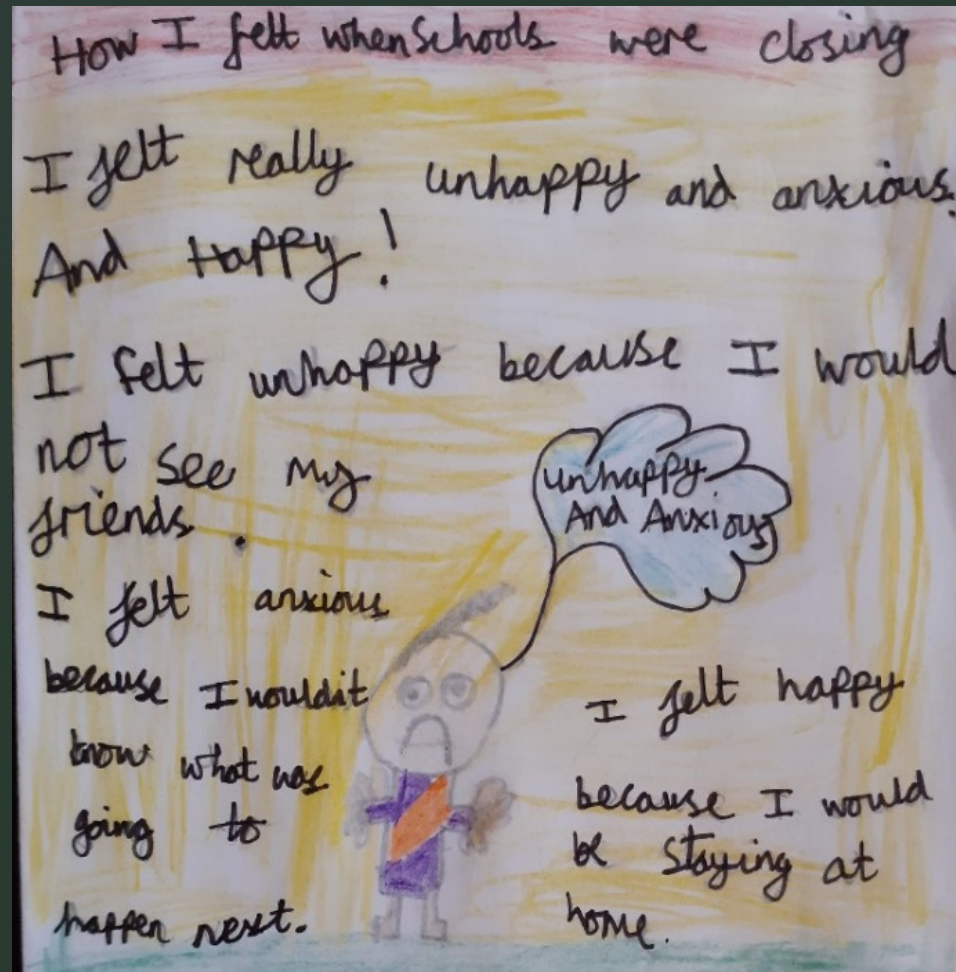 How I felt when Schools were closing
I felt really unhappy and anxious.
And Happy!
I felt unhappy because I would
not see my
friends.
unhappy
And Anxious
I felt anxious
because I wouldit
know what was
going to
happen next.
I felt happy
because I would
be staying at
home.